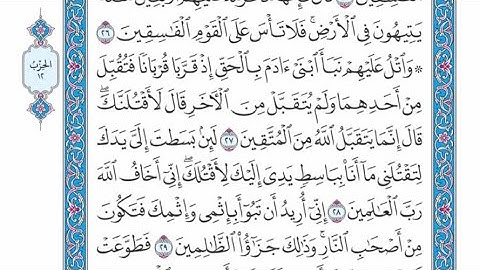 يَتِيهُونَ فِي ٱلْأَرْضِ ۚ فَلَا تَأْسَ عَلَى ٱلْقَوْمِ ٱلْفَٰسِقِينَ ٢٦
۞ وَٱتْلُ عَلَيْهِمْ نَبَأَ ٱبْنَيْ ءَادَمَ بِٱلْحَقِّ إِذْ قَرَّبَا قُرْبَانًا فَتُقُبِّلَ
مِنْ أَحَدِهِمَا وَلَمْ يُتَقَبَّلْ مِنَ ٱلْأٓخَرِ قَالَ لَأَقْتُلَنَّكَ ۖ
قَالَ إِنَّمَا يَتَقَبَّلُ ٱللَّهُ مِنَ ٱلْمُتَّقِينَ ٢٧ لَئِنۢ بَسَطتَ إِلَيَّ يَدَكَ
لِتَقْتُلَنِي مَآ أَنَا۠ بِبَاسِطٍ يَدِيَ إِلَيْكَ لِأَقْتُلَكَ ۖ إِنِّيٓ أَخَافُ ٱللَّهَ
رَبَّ ٱلْعَٰلَمِينَ ٢٨ إِنِّيٓ أُرِيدُ أَن تَبُوٓأَ بِإِثْمِي وَإِثْمِكَ فَتَكُونَ
مِنْ أَصْحَٰبِ ٱلنَّارِ ۚ وَذَٰلِكَ جَزَٰٓؤُا۟ ٱلظَّٰلِمِينَ ٢٩ فَطَوَّعَتْ
الحزب
١٢